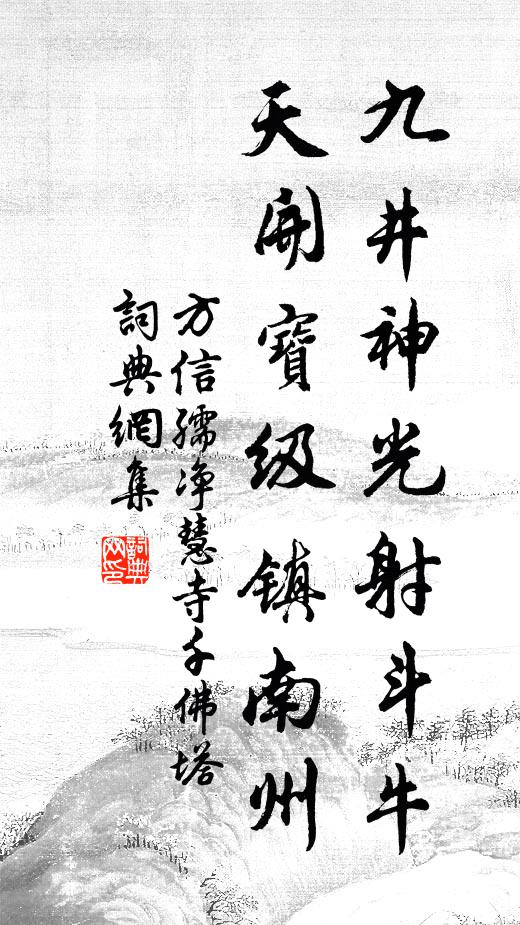 九井神光射斗牛
天開寶级鎮南州
方信孺净慧寺千佛塔
詞典網集
詞典網印